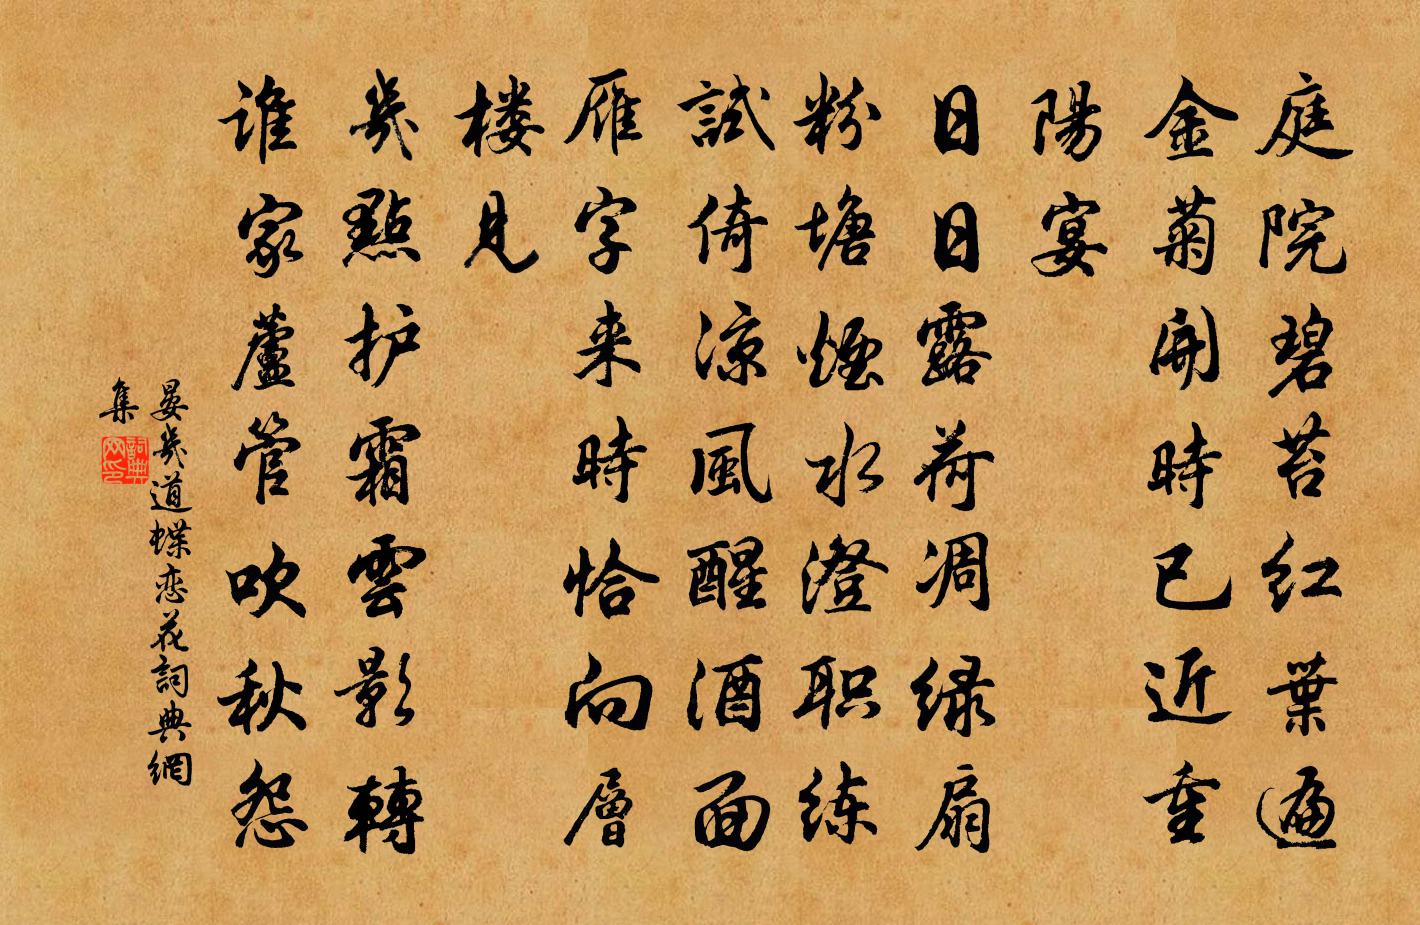 庭院碧苔红葉遍
金菊開時已近重
陽宴
日日露荷凋绿扇
粉塘煙水澄职练
試倚涼風醒酒面
雁字来時恰向層
楼見
幾點护霜雲影轉
谁家蘆管吹秋怨
晏幾道蝶恋花詞典網
集
詞典
网印